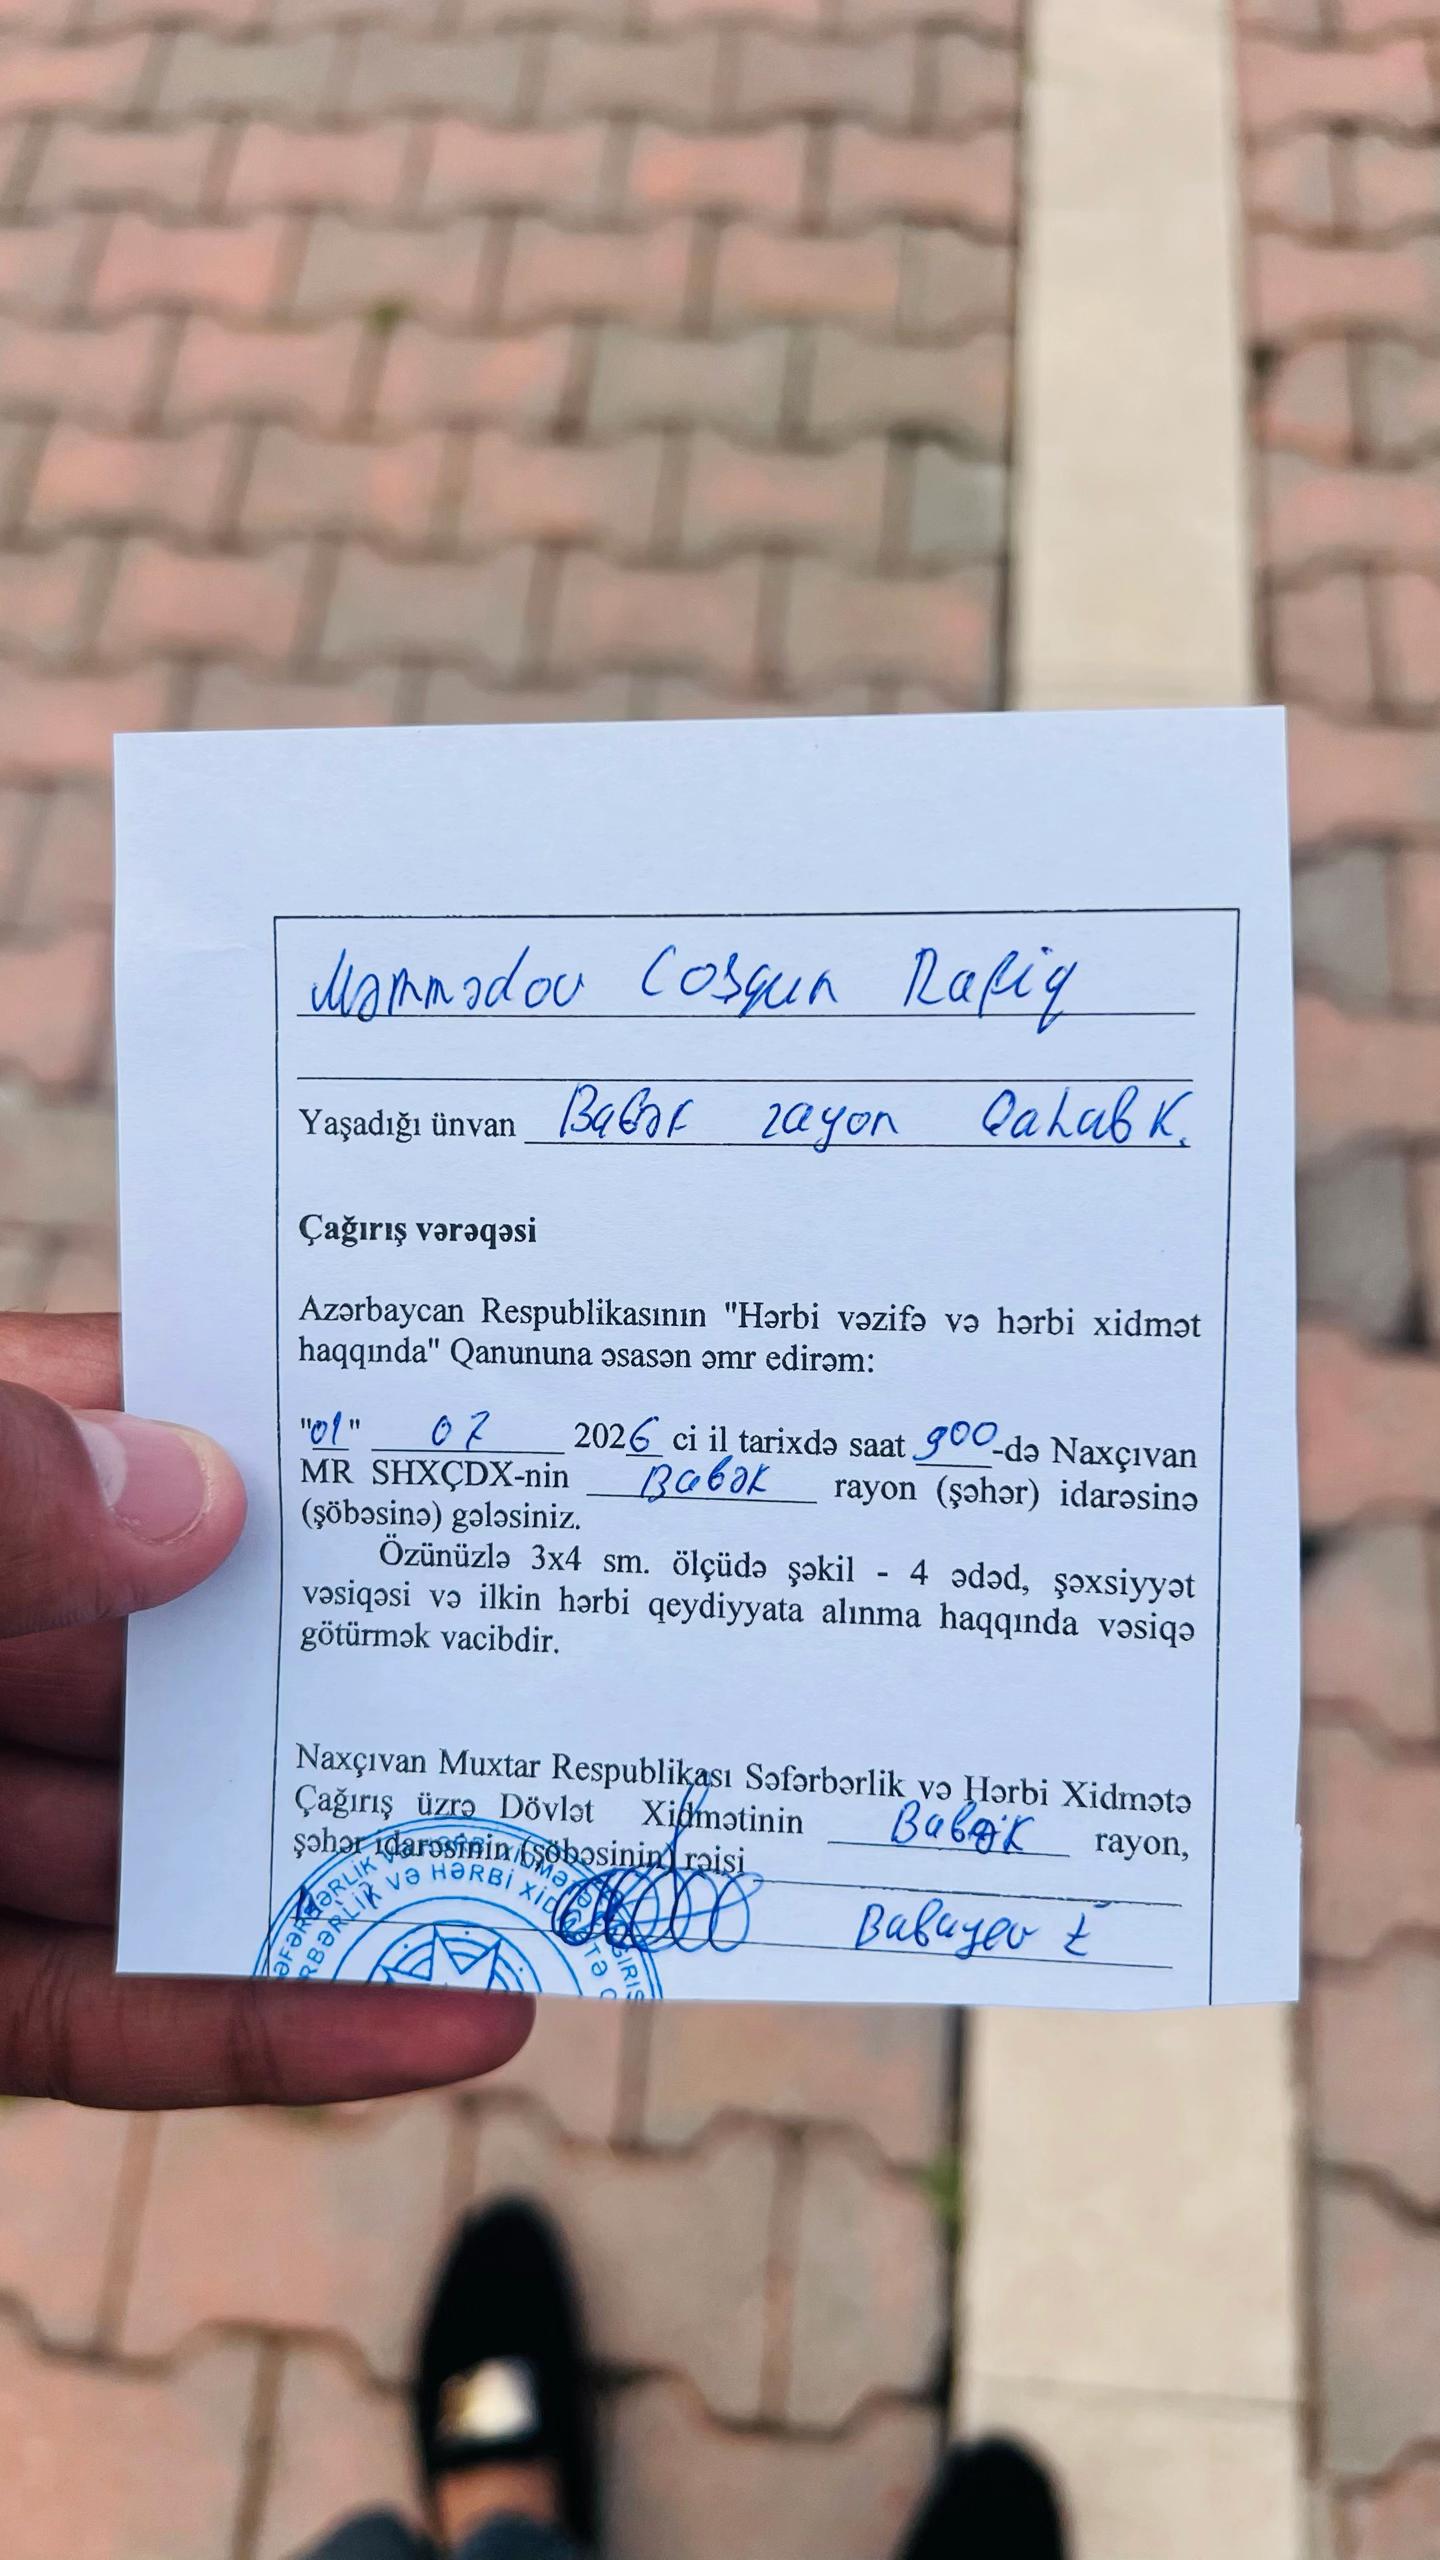 Məmmədov Coşqun Rafiq
Yaşadığı ünvan Babək rayon Qahab K.
Çağırış vərəqəsi
Azərbaycan Respublikasının "Hərbi vəzifə və hərbi xidmət
haqqında" Qanununa əsasən əmr edirəm:
"01" 07 2026 ci il tarixdə saat 900-də Naxçıvan
MR SHXÇDX-nin Babək rayon (şəhər) idarəsinə
(şöbəsinə) gələsiniz.
Özünüzlə 3x4 sm. ölçüdə şəkil - 4 ədəd, şəxsiyyət
vəsiqəsi və ilkin hərbi qeydiyyata alınma haqqında vəsiqə
götürmək vacibdir.
Naxçıvan Muxtar Respublikası Səfərbərlik və Hərbi Xidmətə
Çağırış üzrə Dövlət Xidmətinin Babək rayon,
şəhər idarəsinin (şöbəsinin) rəisi
Babayev E